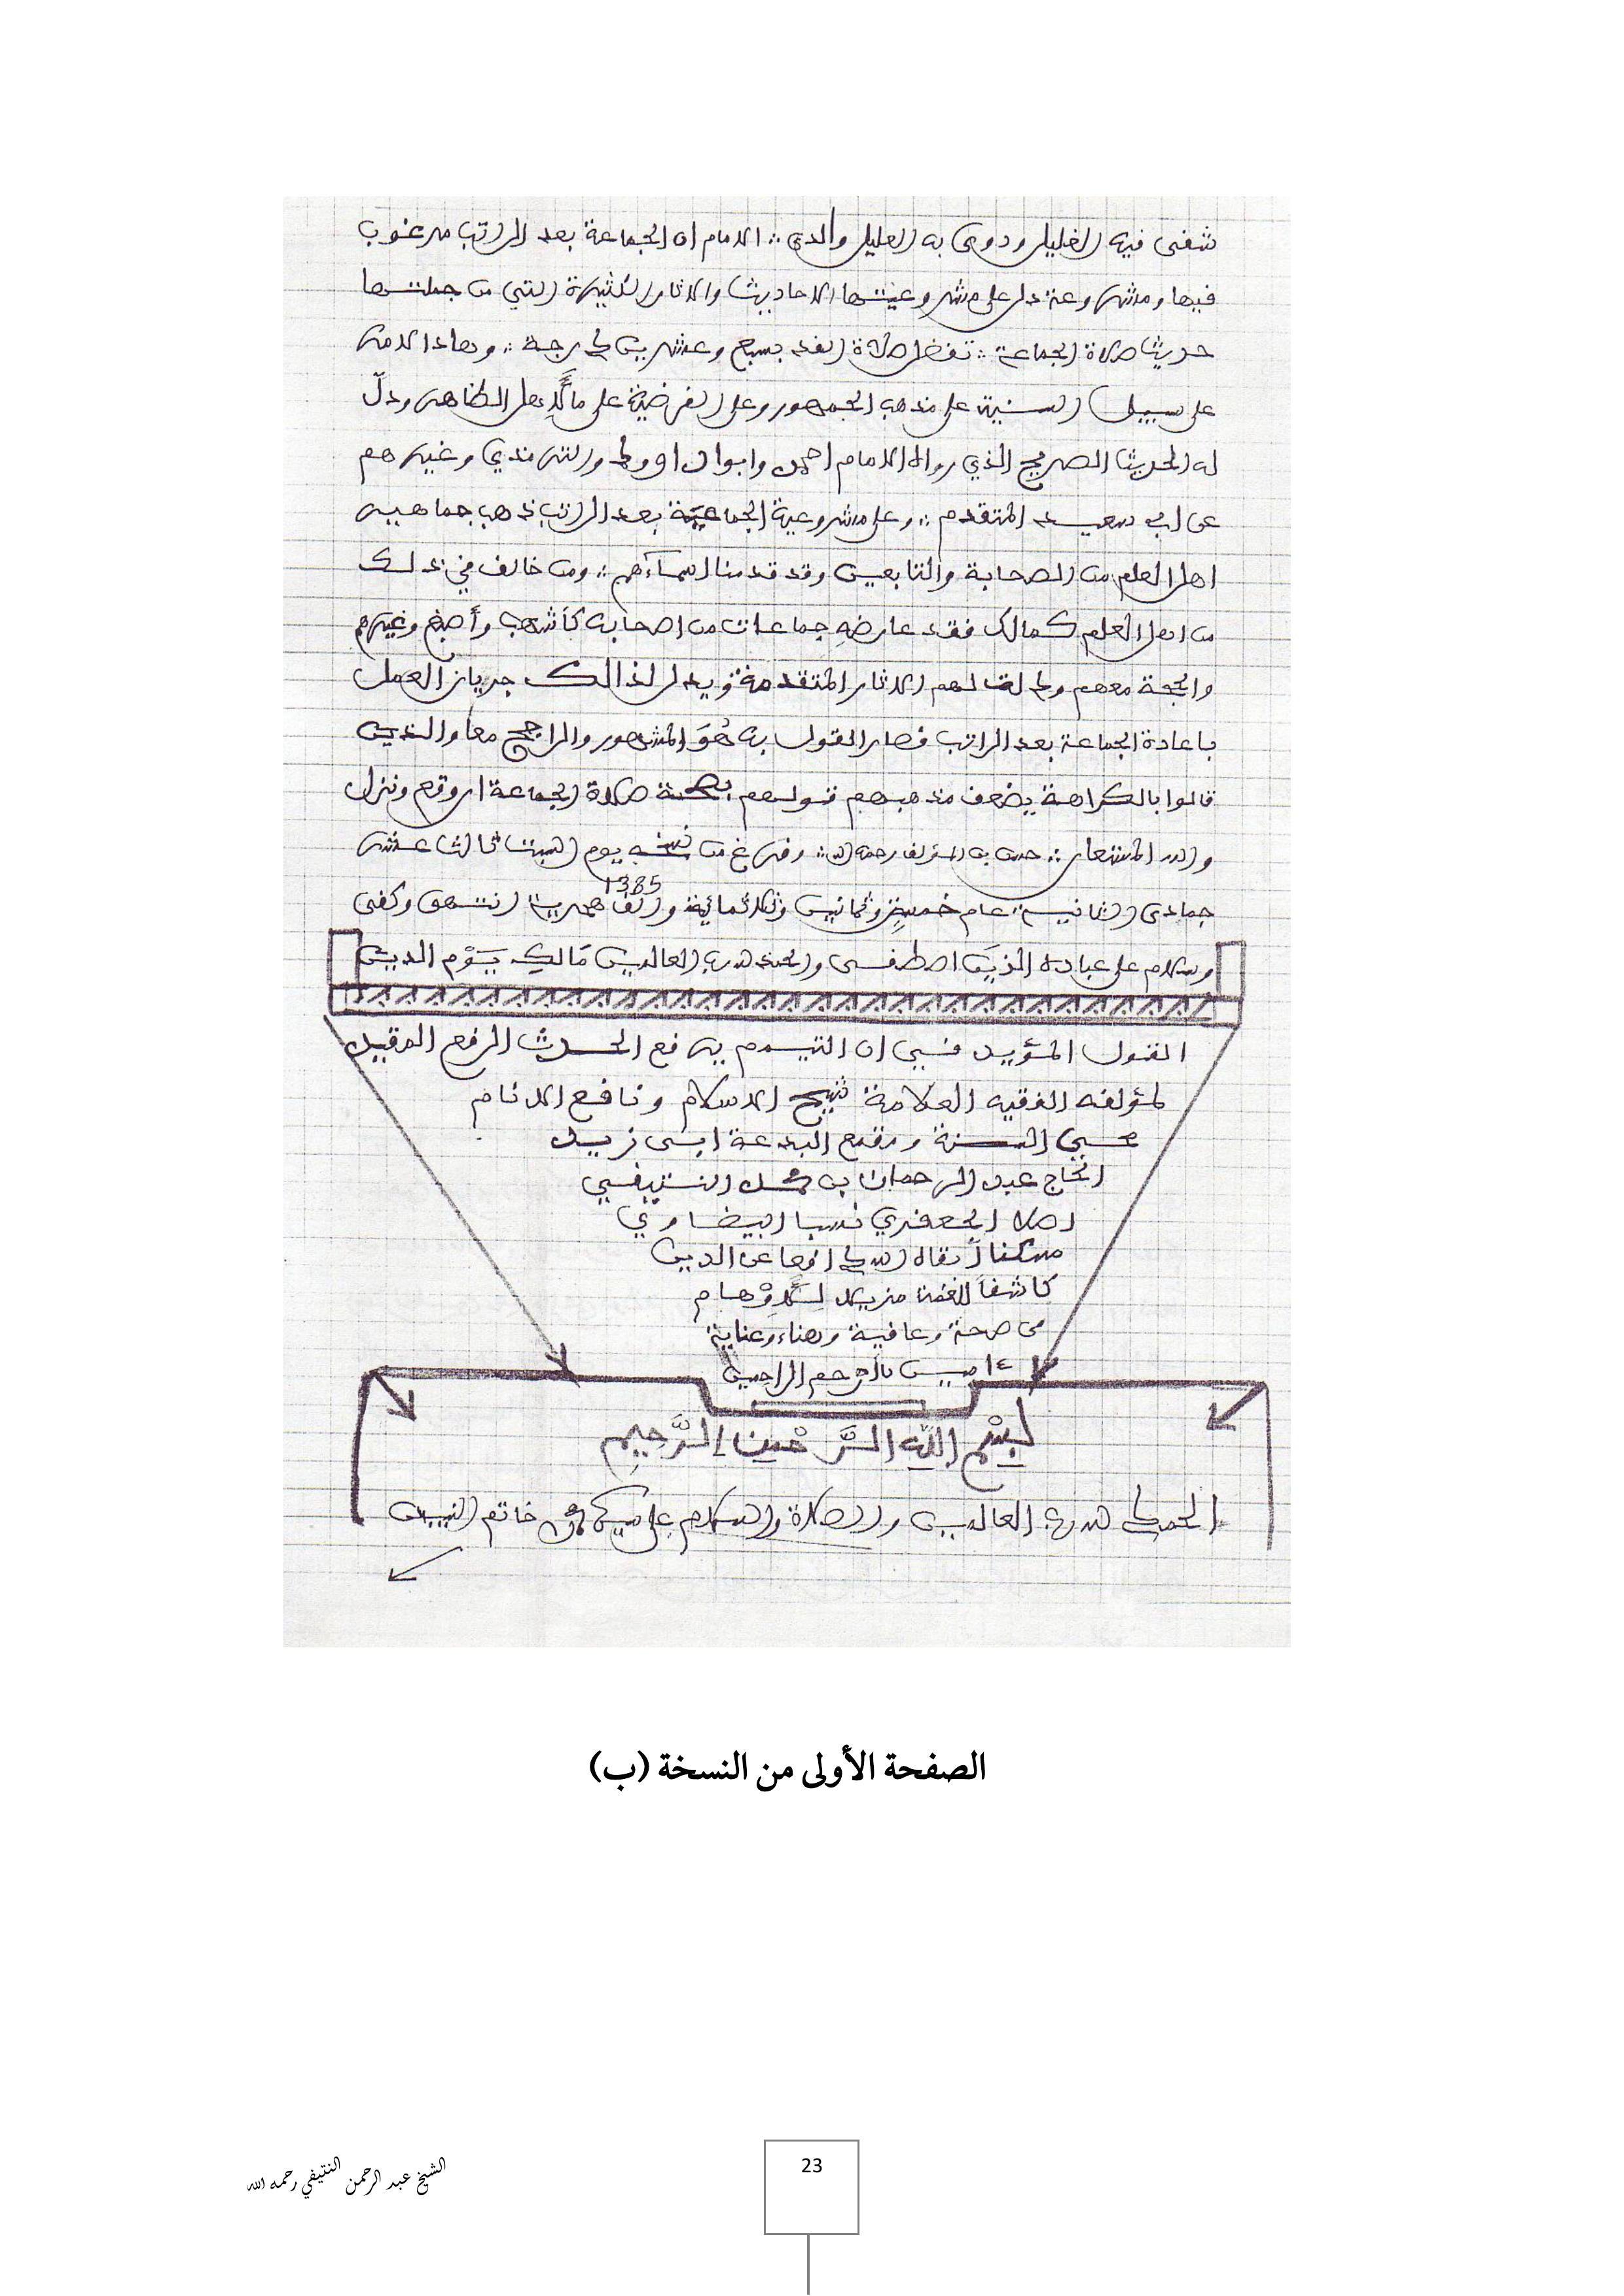 شفى فيه الغليل ودوي به العليل والذي .. الامام ان الجماعة بعد الراتب مرغوب
فيها ومشروعة دل على مشروعيتها الاحاديث والاثار الكثيرة التي من جملتها
حديث صلاة الجماعة .. تفضل صلاة الفذ بسبع وعشرين درجة .. وهاذا الامر
على سبيل السنية على مذهب الجمهور وعلى الفرضية على ما لأهل الظاهر ودلّ
له الحديث الصريح الذي رواه الامام احمد وابو داوود والترمذي وغيرهم
عن ابي سعيد المتقدم .. وعلى مشروعية الجماعة بعد الراتب ذهب جماهير
اهل العلم من الصحابة والتابعين وقد قدمنا اسماءهم .. ومن خالف في ذلك
من اهل العلم كمالك فقد عارضه جماعات من اصحابه كأشهب وأصبغ وغيرهم
والحجة معهم ودلت لهم الاثار المتقدمة ويدل لذالك جريان العمل
باعادة الجماعة بعد الراتب فصار القول به هُوَ المشهور والراجح معا والذين
قالوا بالكراهة يضعف مذهبهم قولهم بصحة صلاة الجماعة
والله المستعان .. المؤلف رحمه الله .. وفرغ من نسخه يوم السبت ثالث عشر
1385
جمادى الثانية عام خمسة وثمانين وثلاثمائة والف هجرية انتهى وكفى
وسلام على عباده الذين اصطفى والحمد لله رب العالمين مَالكِ يَوْم الدين
القول المؤيد في ان التيمم يرفع الحدث الرفع المقيد
لمؤلفه الفقيه العلامة شيخ الاسلام ونافع الانام
محيي السنة وقمع البدعة ابي زيد
الحاج عبد الرحمان بن محمد النتيفي
اصلا الجعفري نسبا البيضاوي
مسكنا أبقاه الله دافعا عن الدين
كاشفاً للغمة مزيلا للأوْهام
في صحة وعافية وهناء وعناية
ءامين يا أرحم الراحمين
بِسْمِ اللَّهِ الرَّحْمنِ الرَّحِيمِ
الحمد لله رب العالمين والصلاة والسلام على سيدنا محمد خاتم النبيين
الصفحة الأولى من النسخة (ب)
الشيخ عبد الرحمن النتيفي رحمه الله
23